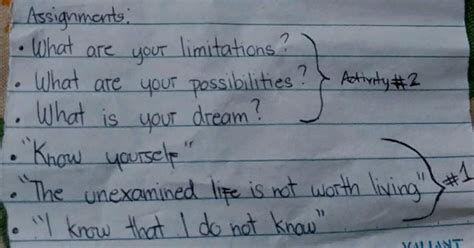 Assignments:
• What are your limitations?
• What are your possibilities? Activity #2
• What is your dream?
• "Know yourself"
• "The unexamined life is not worth living" #1
• "I know that I do not know"
VALIANT